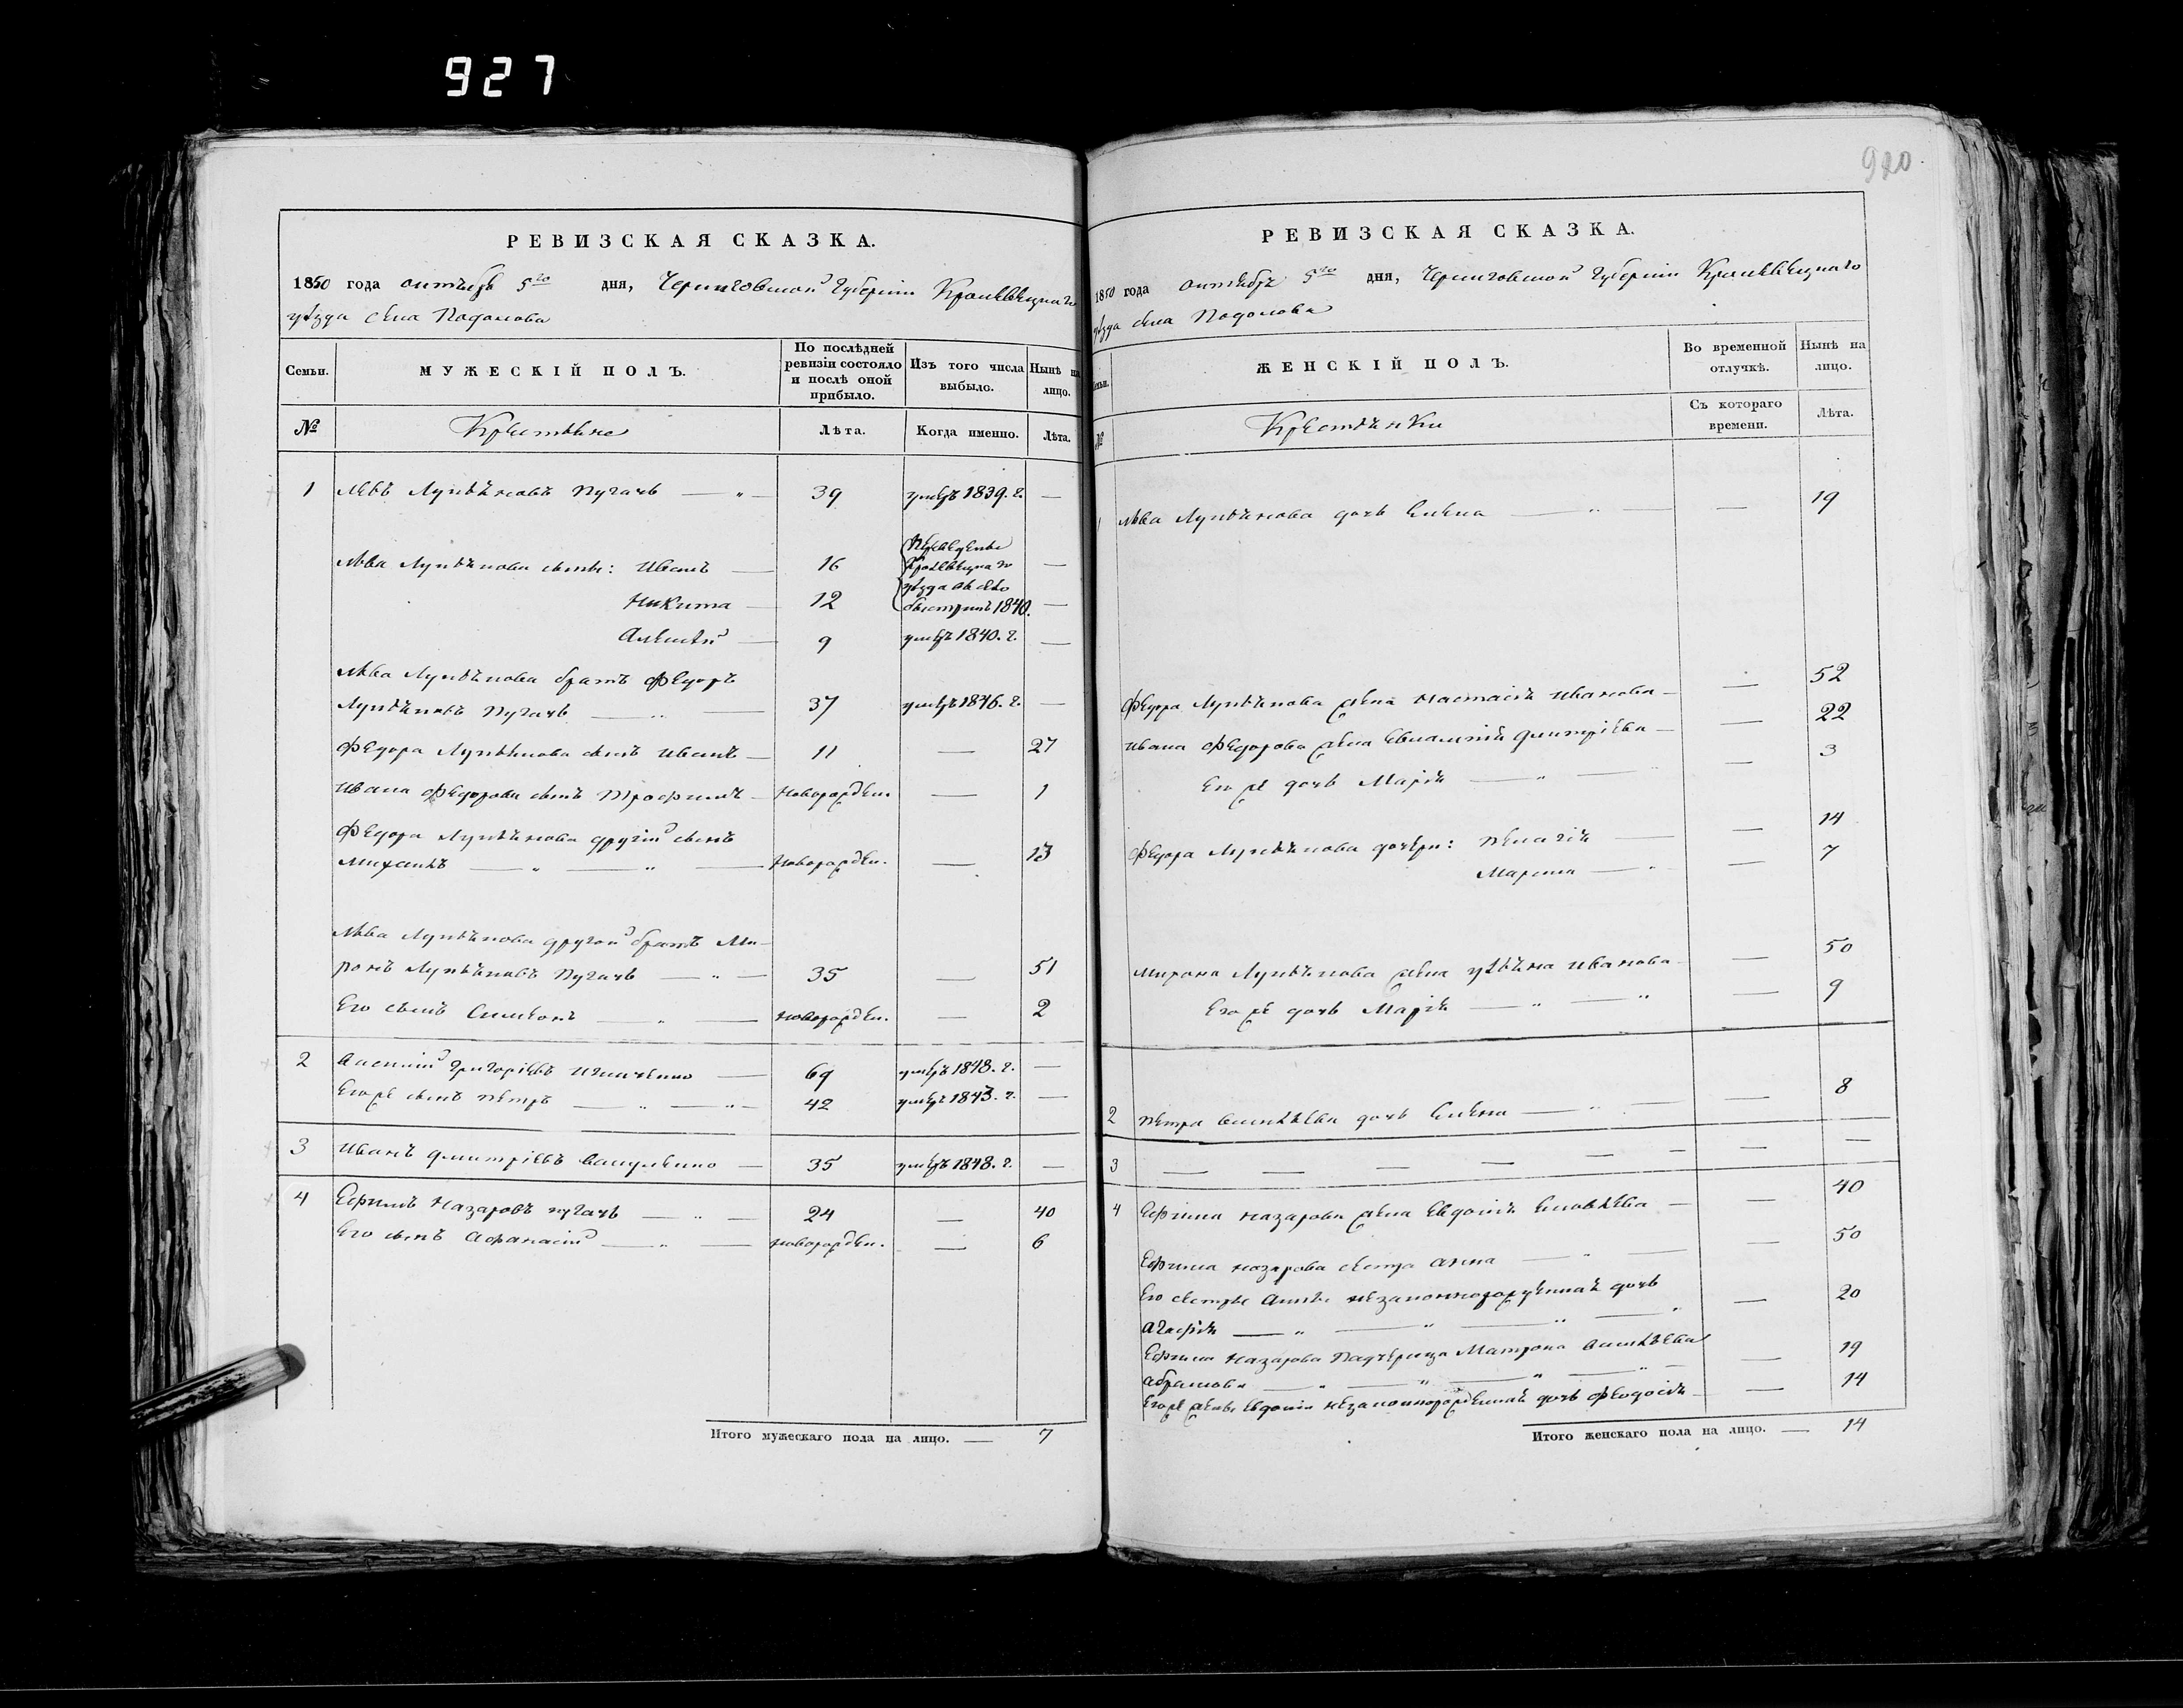 927
920
РЕВИЗСКАЯ СКАЗКА.
1850 года октября 5го дня, Черниговской Губернiи Кролевецкаго
уѣзда села Подолова
Семьи. МУЖЕСКIЙ ПОЛЪ. По послѣдней ревизiи состояло и послѣ оной прибыло. Изъ того числа выбыло. Нынѣ на лицо.
№ Крестьяне Лѣта. Когда именно. Лѣта.
1 Левъ Лукьяновъ Пугачь — „ — 39 умеръ 1839. г. —
Льва Лукьянова сыны: Иванъ — 16 Переведены Кролевецкаго —
Никита — 12 уѣзда въ село Быстрикъ 1840. —
Алексѣй — 9 умеръ 1840. г. —
Льва Лукьянова братъ Федоръ
Лукьяновъ Пугачь — „ — 37 умеръ 1846. г. —
Федора Лукьянова сынъ Иванъ — 11 — 27
Ивана Федорова сынъ Трофимъ — Новорожден. — 1
Федора Лукьянова другiй сынъ
Михаилъ — „ — „ — Новорожден. — 13
Льва Лукьянова другой братъ Ми-
ронъ Лукьяновъ Пугачь — „ — 35 — 51
Его сынъ Симеонъ — „ — новорожден. — 2
2 Григорiевъ — 69 умеръ 1848. г. —
Егоже сынъ Петръ — „ — „ — 42 умеръ 1843. г. —
3 Иванъ Дмитрiевъ — 35 умеръ 1848. г. —
4 Ефимъ Назаровъ Пугачь — „ — 24 — 40
Его сынъ Афанасiй — „ — новорожден. — 6
Итого мужескаго пола на лицо. — 7
РЕВИЗСКАЯ СКАЗКА.
1850 года октября 5го дня, Черниговской Губернiи Кролевецкаго
уѣзда села Подолова
Семьи. ЖЕНСКIЙ ПОЛЪ. Во временной отлучкѣ. Нынѣ на лицо.
№ Крестьянки Съ котораго времени. Лѣта.
1 Льва Лукьянова дочь Елена — „ — — 19
Федора Лукьянова жена Настасiя Иванова — — 52
Ивана Федорова жена Дмитрiева — — 22
Его же дочь Марiя — „ — — 3
Федора Лукьянова дочери: Пелагiя — — 14
Марина — „ — 7
Мирона Лукьянова жена Ульяна Иванова — — 50
Его же дочь Марiя — „ — „ — 9
2 Петра дочь Елена — „ — — 8
3 — — — — — — — —
4 Ефима Назарова жена Евдокiя — — 40
Ефима Назарова сестра Анна — „ — — 50
Его сестры Анны незаконнорожденная дочь
Агафiя — „ — „ — „ — „ — 20
Ефима Назарова Падчерица Матрона
— „ — „ — „ — „ — — 19
Егоже жены Евдокiи незаконнорожденная дочь Феодосiя — — 14
Итого женскаго пола на лицо. — 14